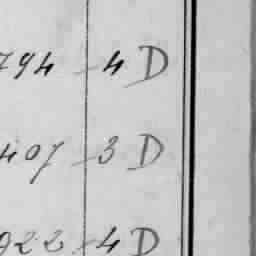 794 - 4 D
407 - 3 D
922 - 4 D